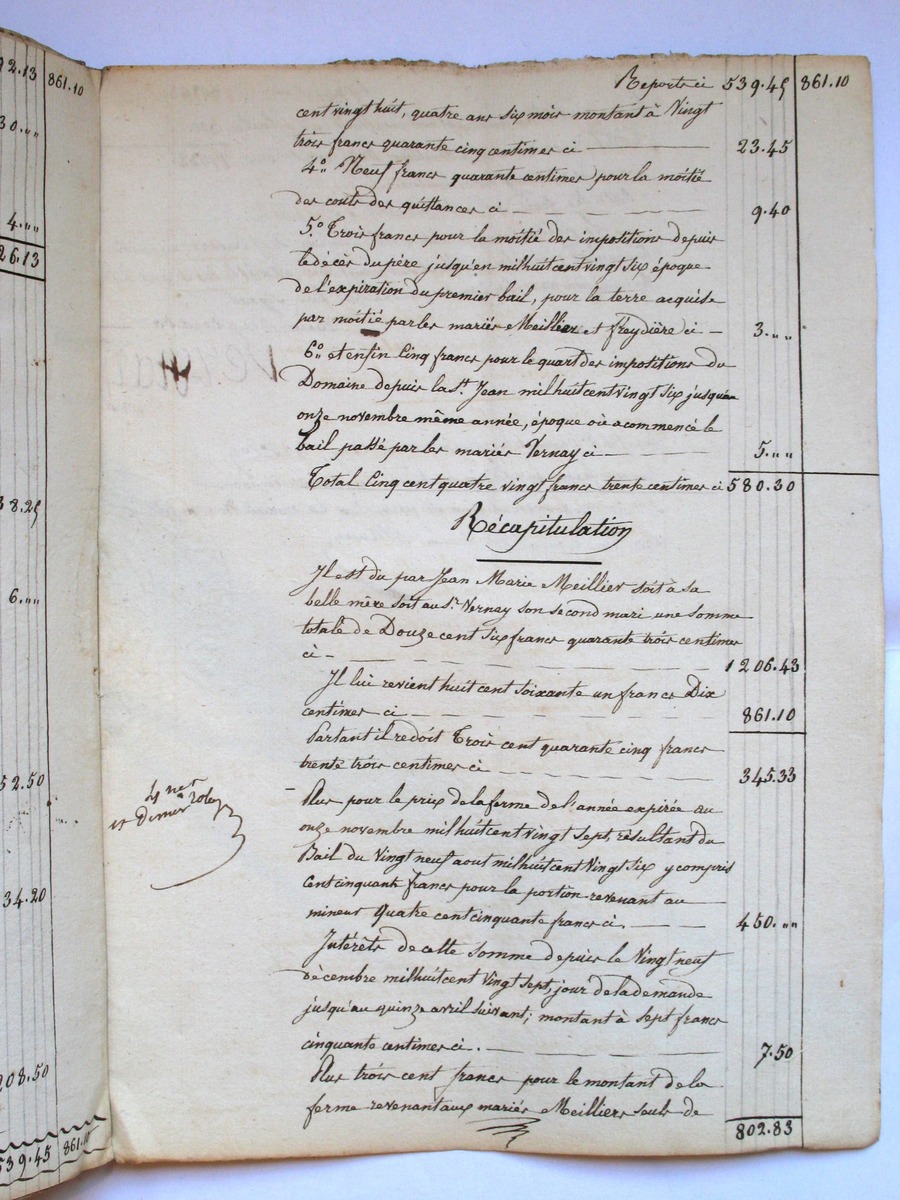 92.13 861.10
30."
4."
26.13
38.25
6.""
52.50
34.20
208.50
539.45 861.10
Report ci 539.45 861.10
cent vingt huit, quatre ans six mois montant à Vingt
trois francs quarante cinq centimes ci 23.45
4.° Neuf francs quarante centimes pour la moitié
des couts des quittances ci 9.40
5.° Trois francs pour la moitié des impositions depuis
le décès du père jusqu'en mil huit cent vingt six époque
de l'expiration du premier bail, pour la terre acquise
par moitié par les mariés Meillier et freydière ci 3.""
6.° et enfin Cinq francs pour le quart des impositions du
Domaine depuis la St. Jean mil huit cent vingt six jusqu'au
onze novembre même année, époque où a commencé le
bail passé par les mariés Vernay ci 5.""
Total Cinq cent quatre vingt francs trente centimes ci 580.30
Récapitulation
Il est du par Jean Marie Meillier soit à sa
belle mère soit au Sr. Vernay son second mari une somme
totale de Douze cent six francs quarante trois centimes
ci 1206.43
Il lui revient huit cent soixante un francs Dix
centimes ci 861.10
Partant il redoit Trois cent quarante cinq francs
trente trois centimes ci 345.33
Plus pour le prix de la ferme de l'année expirée au
onze novembre mil huit cent vingt sept, résultant du
Bail du Vingt neuf aout mil huit cent Vingt Six y compris
Cent cinquante francs pour la portion revenant au
mineur Quatre cent cinquante francs ci. 450.""
Intérêts de cette Somme depuis le Vingt neuf
décembre mil huit cent Vingt Sept, jour de la demande
jusqu'au quinze avril suivant; montant à Sept francs
cinquante centimes ci. 7.50
Plus trois cent francs pour le montant de la
ferme revenant aux mariés Meilliers seuls de
802.83
et Dernier